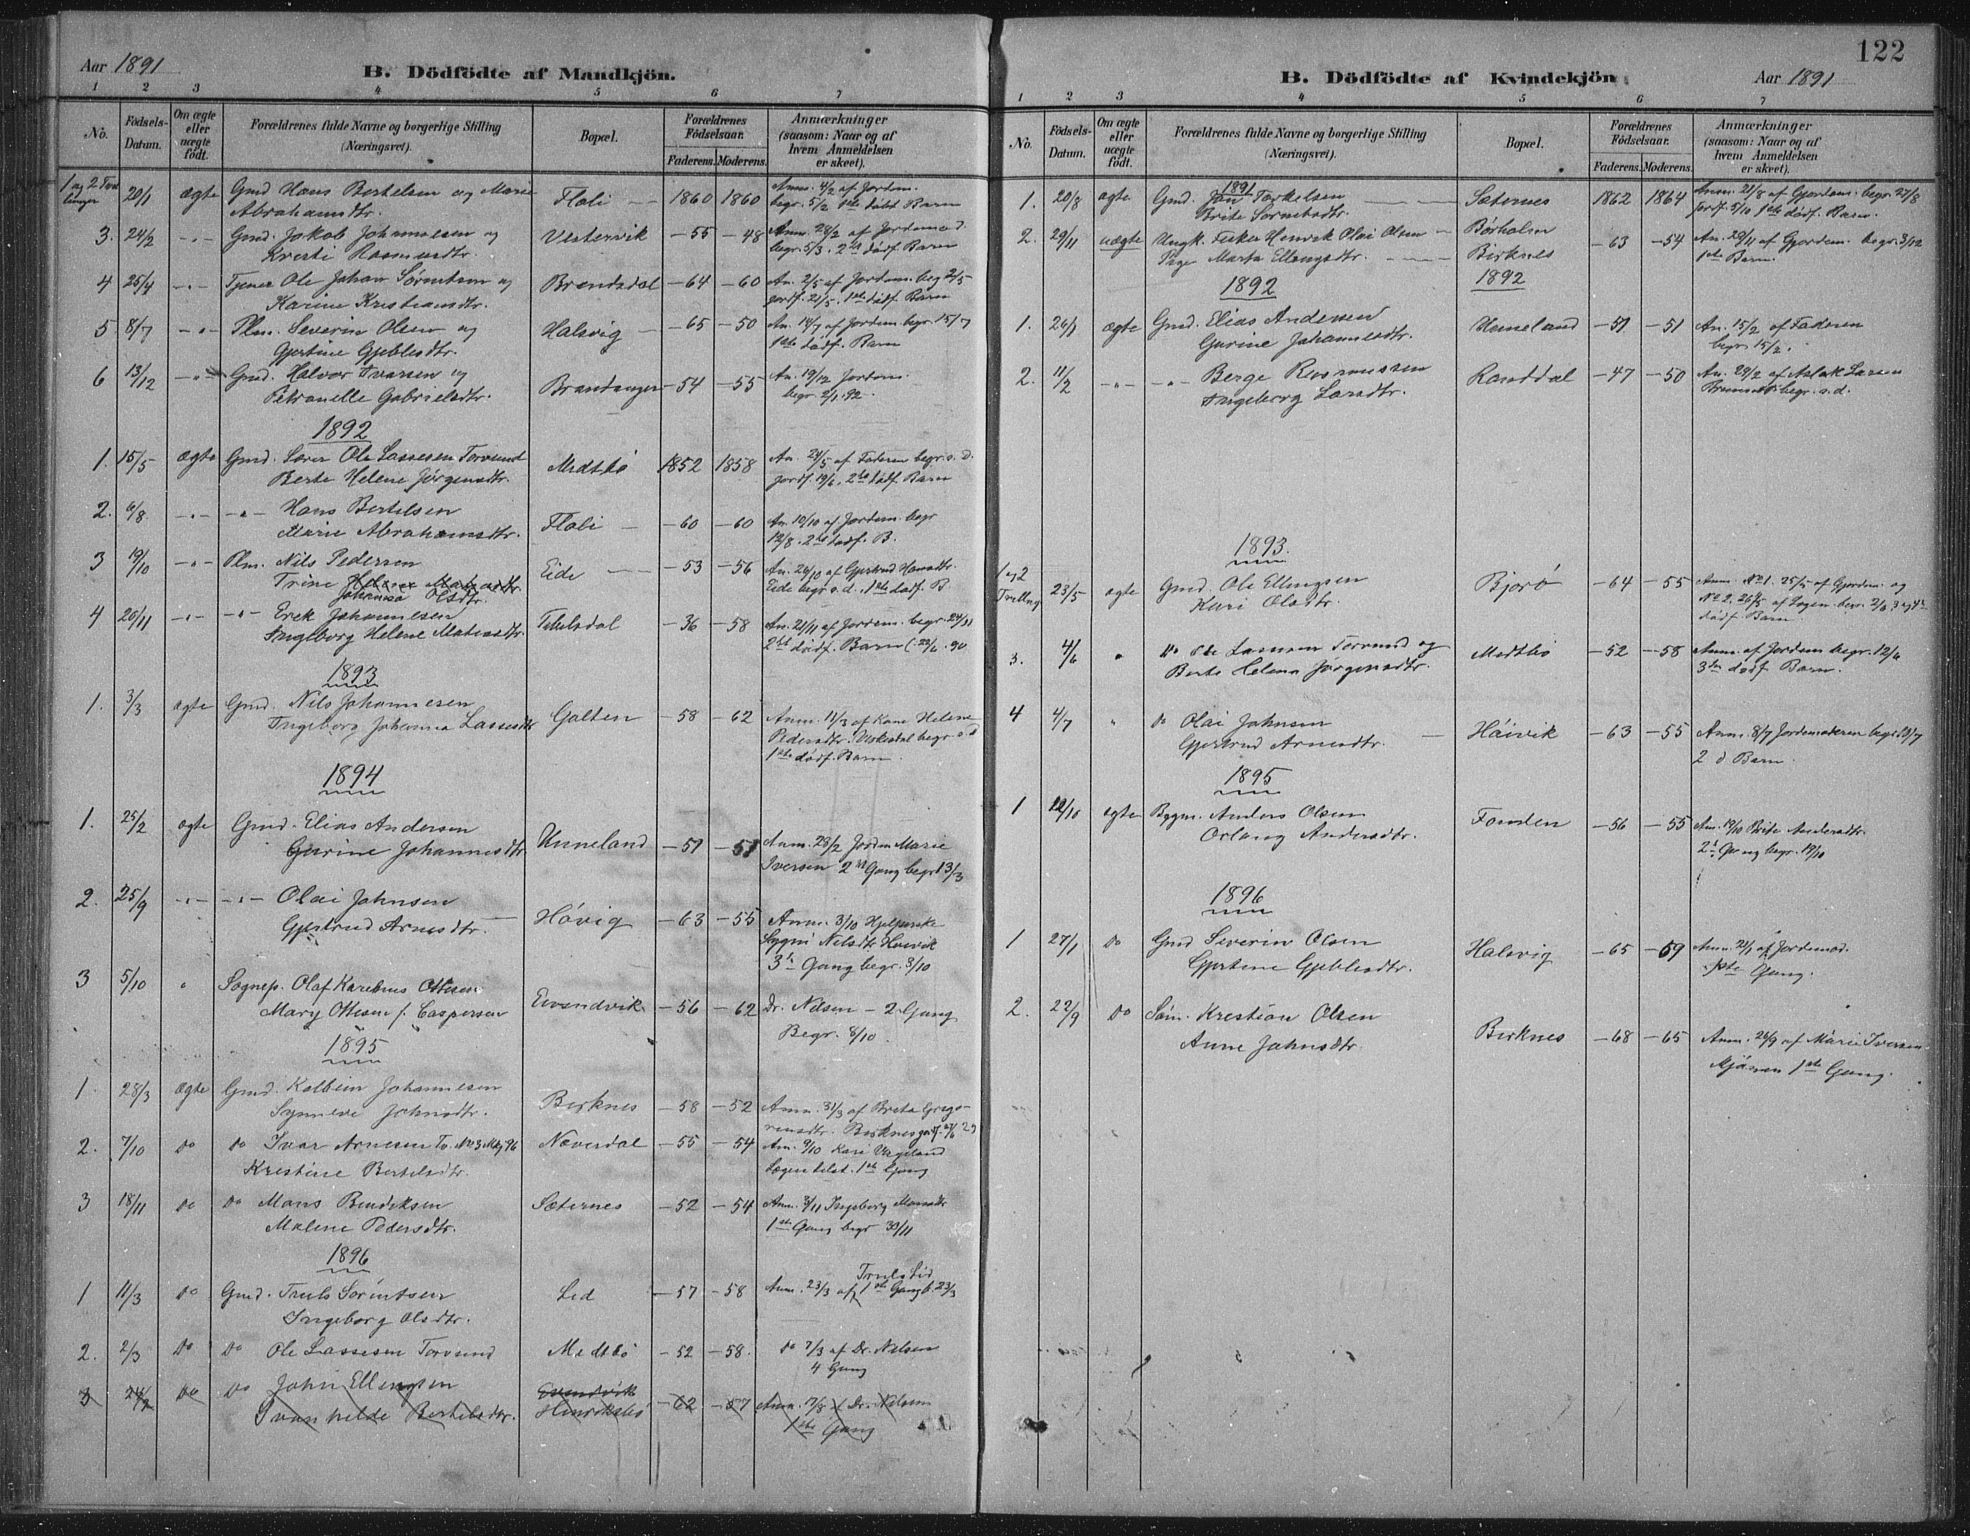 122
Aar 1891
B. Dödfödte af Mandkjön.
1 2 3 4 5 6 7
No.
Födsels-Datum.
Om ægte eller uægte födt.
Forældrenes fulde Navne og borgerlige Stilling (Næringsvei).
Bopæl.
Forældrenes Födselsaar.
Faderens. Moderens.
Anmærkninger (saasom: Naar og af hvem Anmeldelsen er skeet).
1 og 2 20/1 ægte Gmd Hans Bertelsen og Marie Floli 1860 1860 Anm. 4/2 af Jordm.
Abrahamsdtr. begr. 5/2 1ste dødf. Barn
3. 24/2 -"- Gmd. Jakob Johannesen og Vestervik -55 -48 Anm. 28/2 af Jordemod.
Kristi Rasmusdtr. begr. 5/3. 2det dødf. Barn
4 25/4 -"- Tjener Ole Johan Sørensen og Brendsdal -64 -60 An. 2/5 af Jordem. beg 2/5
Karine Kristiansdtr. jordf. 21/5. 1ste dødf. Barn
5 8/7 -"- Plm. Severin Olsen og Halsvig -65 -50 An. 14/7 af Jordem begr. 15/7
Gjertine Gjeblesdtr. 1ste dødf. Barn
6 13/12 -"- Gmd. Halvor Ivarsen og Brandanger -54 -55 An. 19/12 Jordem.
Petronelle Gabrielsdtr. begr. 2/1.92.
1892
1. 15/5 ægte Gmd. Ole Lassesen Torvund Medtbø 1852 1858 An. 24/5 af Faderen begr. s.d.
Berte Helene Jørgensdtr. jordf. 19/6. 2det dødf. Barn
2. 6/8 -"- -"- Hans Bertelsen Floli -60 -60 An. 10/10 af Jordem. begr
Marie Abrahamsdtr. 12/8. 2det dødf. B.
3 19/10 -"- Plm. Nils Pedersen Eide -53 -56 An. 26/10 af Gjertrud Hansdtr.
Trine Johanna Olsdtr. Eide begr s.d. 1ste dødf. B
4 20/11 -"- -"- Erik Johannesen -36 -58 An. 21/11 af Jordem. begr. 24/11
Ingeborg Helene Matiasdtr. 2det dødf. Barn
1893
1. 3/3 ægte Gmd. Nils Johannesen Galten -58 -62 Anm. 11/3 af Kone Helene
Ingeborg Johanna Lassesdtr Pedersdtr. begr. s.d
1ste dødf. Barn
1894
1. 25/2 ægte Gmd. Elias Andersen Unneland -51 -51 Anm. 28/2 Jordm Marie
Gurine Johannesdtr. Iversen 2den Gang begr 13/3
2. 25/9 -"- -"- Olai Johnsen Høvig -63 -55 Anm. 3/10
Gjertrud Arnesdtr. Nilsdtr Høivik
3die Gang begr. 3/10
3 5/10 " Sognep. Olaf Karelius Ottesen Evendvik -56 -62 Dr. Nilsen - 2 Gang
Mary Ottesen f. Caspersen Begr. 8/10.
1895
1. 28/3 Ægte Gmd. Kolbein Johannesen Birknes -58 -52 Anm. 31/3 af Brita Grego-
Synneve Johnsdtr. riusdtr. Birknes
2. 7/10 do do Ivar Arnesen Næverdal -55 -54 An. 9/10 Kari
Kristine Bertelsdtr. Lægen tilst. 1ste Gang
3 18/11 do do Mons Bendiksen Sæternes -52 -54 Anm. Ingeborg Monsdtr
Malene Pedersdtr. 1ste Gang begr 30/11
1896
1 11/3 do Gmd. Truls Sørensen Lid -57 -58 Anm. 23/3 af Truls Lid 1ste Gang b. 23/3
Ingeborg Olsdtr.
2. 2/3 do do Ole Lassesen Torvund Medtbø -52 -58. do 7/3 af Dr. Nilsen
4 Gang
3 do do John Ellingsen Evendvik
Bertelsdtr. Henriksbø -62 -57 Anm. 17/8 Dr. Nilsen
1ste Gang
B. Dödfödte af Kvindekjön
Aar 1891
1 2 3 4 5 6 7
No.
Födsels-Datum.
Om ægte eller uægte födt.
Forældrenes fulde Navne og borgerlige Stilling (Næringsvei).
Bopæl.
Forældrenes Födselsaar.
Faderens. Moderens.
Anmærkninger (saasom: Naar og af hvem Anmeldelsen er skeet).
1891
1. 20/8 ægte Gmd. Jon Torkelsen Sæternes 1862 1864 Anm. 21/8 af Gjordem. begr. 27/8
Brite Sørensdtr. 1ste dødf. Barn.
2. 29/11 uægte Ungk. Fisker Henrik Olai Olsen Børholm -63 -54 An. 29/11 af Gjordem. begr. 3/12
Pige Marta Ellingsdtr. Birknes 1ste Barn.
1892 1892
1. 26/1 ægte Gmd. Elias Andersen Uneland -51 -51 An. 15/2 af Faderen
Gurine Johannesdtr. begr. 15/2.
2. 11/2 -"- -"- Berge Rasmussen Randdal -47 -50 An. 29/2 af Aslak Larsen
Ingeborg Larsdtr. begr. s.d.
1893.
1 og 2 23/5 ægte Gmd. Ole Ellingsen Bjorø -64 -55 Anm. No 1. 25/5 af Gjordem. og
Tvilling Kari Olsdtr. No 2. 26/5 af Lægen begr. 2/6
dødf. Barn.
3. 4/6 " Do Ole Lassesen Torvund og Medtbø -52 -58 Anm. af Jordem begr. 12/6
Berte Helene Jørgensdtr. 3die dødf. Barn.
4 4/7 " do Olai Johnsen Høivik -63 -55 Anm. 8/7 Jordemoderen
Gjertrud Arnesdtr. 2 d Barn.
1895
1 12/10 ægte Bygm. Anders Olsen Fonden -56 -55 Anm. 19/10 Brite Andersdtr.
Orlaug Andersdtr. 2d Gang begr. 19/10
1896
1 27/1 do Gmd Severin Olsen Halsvig -65 -59 Anm. af Jordemod.
Gjertine Gjeblesdtr. 1ste Gang.
2. 22/9 do Søm. Krestian Olsen Birknes -68 -65 Anm. 26/9 af Marie Iversen
Anne Johnsdtr. Mjømen 1ste Gang.